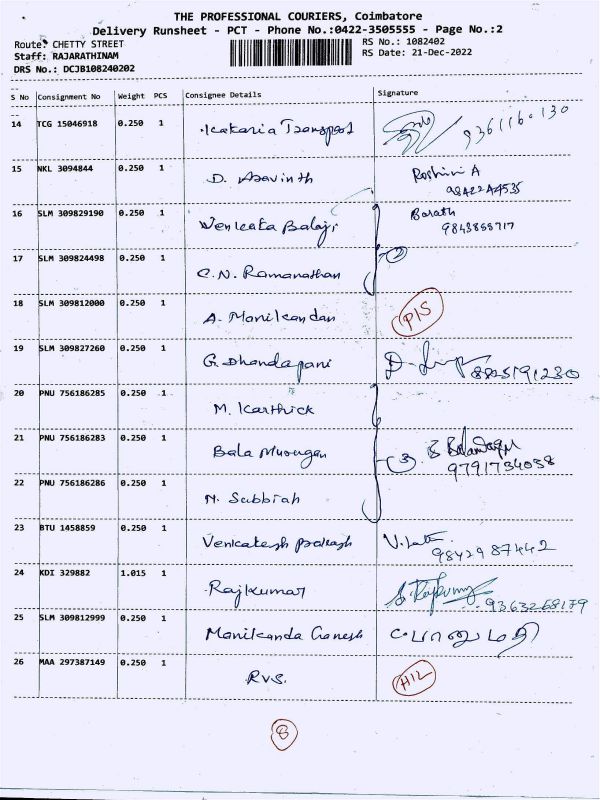 THE PROFESSIONAL COURIERS, Coimbatore
Delivery Runsheet - PCT - Phone No.:0422-3505555 - Page No.:2
Route: CHETTY STREET
RS No.: 1082402
Staff: RAJARATHINAM
RS Date: 21-Dec-2022
DRS No.: DCJB108240202
S No Consignment No Weight PCS Consignee Details Signature
14 TCG 15046918 0.250 1 Kakaria Transport
15 NKL 3094844 0.250 1 D. Aravinth Roshini A
9842244535
16 SLM 309829190 0.250 1 Venkata Balaji Barath
9843888717
17 SLM 309824498 0.250 1 C.N. Ramanathan 2
18 SLM 309812000 0.250 1 A. Manikandan P/S
19 SLM 309827260 0.250 1 G. Dhandapani 8825191230
20 PNU 756186285 0.250 1 M. Karthick
21 PNU 756186283 0.250 1 Bala Murugan 3
9791734038
22 PNU 756186286 0.250 1 N. Subbiah
23 BTU 1458859 0.250 1 Venkatesh Prakash V. Latt
9842987442
24 KDI 329882 1.015 1 Rajkumar S. Rajkumar
9363268179
25 SLM 309812999 0.250 1 Manikanda Ganesh
26 MAA 297387149 0.250 1 RVS. H12
8